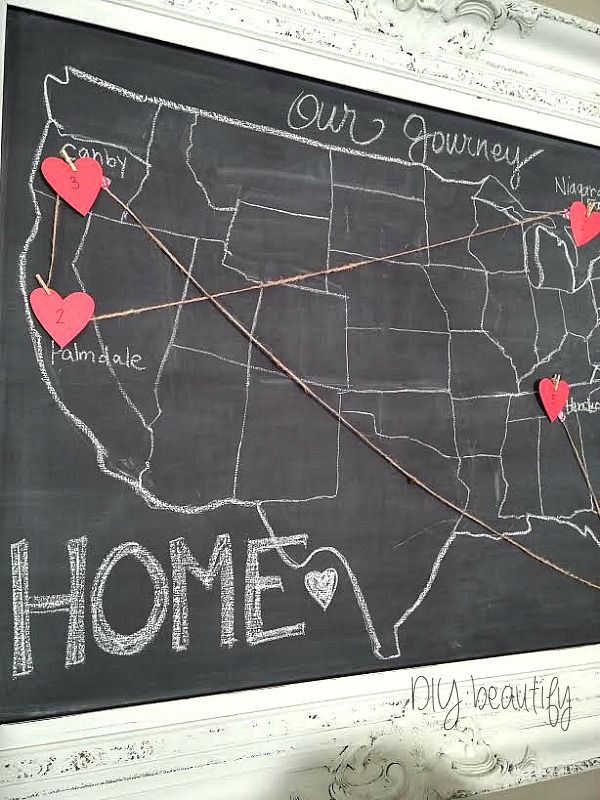 Our Journey
Canby
3
Niagara
2
Palmdale
HOME
DIY beautify